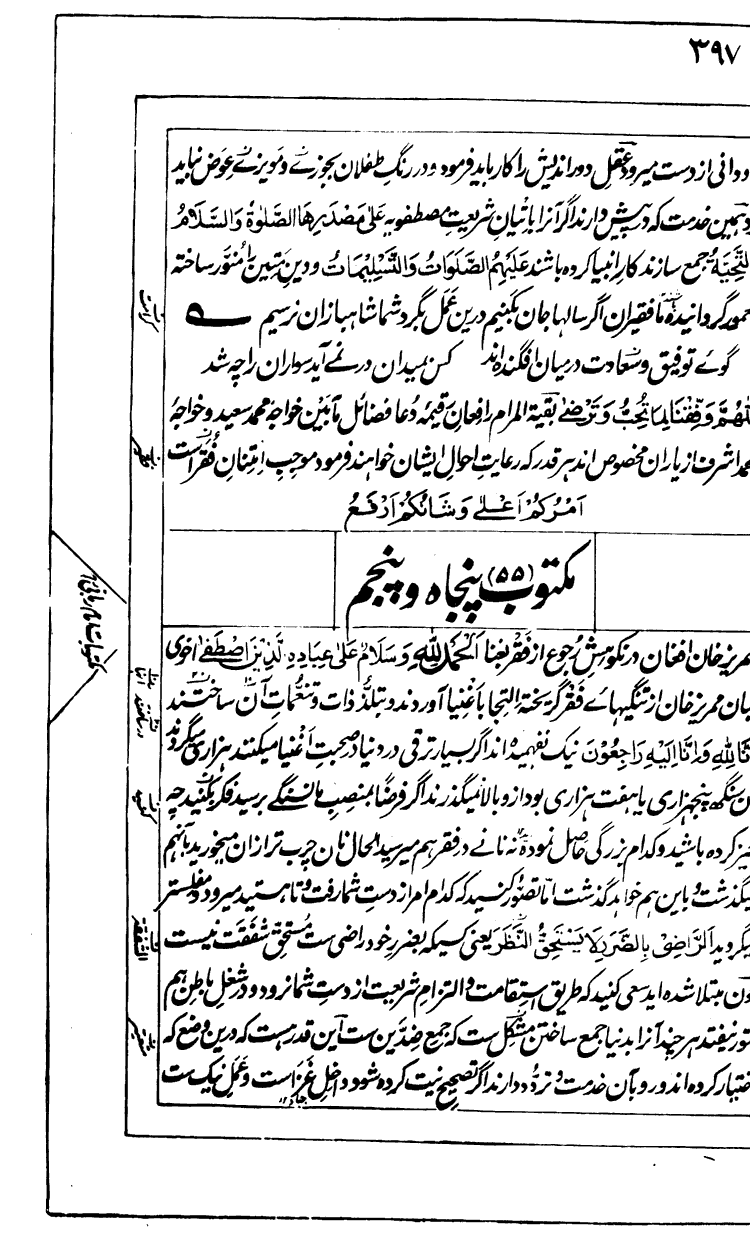 ۳۹۷
ودانی از دست میرود عقل دوراندیش را کار باید فرمود و در رنگ طفلان بجوزے و مویزے عوض نباید
همین خدمت که در پیش دارند اگر آنرا باتیان شریعت مصطفویه عَلیٰ مَصْدَرِهَا الصَّلٰوةُ وَالسَّلَامُ
التَّحِیَّةُ جمع سازند کار انبیا کرده باشند عَلَیْهِمُ الصَّلَوَاتُ وَالتَّسْلِیْمَاتُ و دین متین را منوّر ساخته
گردانیده ما فقیران اگر سالها جان بکنیم درین عمل بگرد شما شاهبازان نرسیم
گوے توفیق و سعادت درمیان افگنده اند کس بمیدان در نمے آید سواران را چه شد
اَللّٰهُمَّ وَفِّقْنَا لِمَا تُحِبُّ وَتَرْضٰی بقیة المرام رافعان رقیمۀ دعا فضائل مآبین خواجه محمد سعید و خواجه
محمد اشرف از یاران مخصوص اند هر قدر که رعایت احوال ایشان خواهند فرمود موجب امتنان فقراست
اَمْرُکُمْ اَعْلیٰ وَشَانُکُمْ اَرْفَعُ
مکتوب (۵۵) پنجاه و پنجم
ممریز خان افغان در نکوهش رجوع از فقر بغنا اَلْحَمْدُ لِلّٰهِ وَسَلَامٌ عَلیٰ عِبَادِهِ الَّذِیْنَ اصْطَفیٰ اخوی
میان ممریز خان از تنگیهاے فقر گریخته التجا باغنیا آوردند و بتلذذات و تنعمات آن ساختند
اِنَّا لِلّٰهِ وَاِنَّا اِلَیْهِ رَاجِعُوْنَ نیک نفهمیده اند اگر بسیار ترقی در دنیا در صحبت اغنیا میکنند هزاری میگردند
سنگه پنجهزاری یا هفت هزاری بود ازو بالا نمیگذرند اگر فرضا بمنصب مانسنگے برسید فکر بکنید چه
چیز کرده باشید و کدام بزرگی حاصل نموده نه نانے در فقر هم میرسید الحال نان چرب تر ازان میخورید آنهم
میگذشت و باین هم خواهد گذشت اما تصور کنید که کدام امر از دست شما رفت و تا هستید میرود و مفلستر
میگردید اَلرَّاضِیْ بِالضَّرَرِ لَا یَسْتَحِقُّ النَّظَرَ یعنی کسیکه بضرر خود راضی ست مستحق شفقت نیست
مبتلا شده اید سعی کنید که طریق استقامت و التزام شریعت از دست شما نرود و در شغل باطن هم
فتور نیفتد هر چند آنرا بدنیا جمع ساختن مشکل ست که جمع ضدین ست این قدر هست که درین وضع که
اختیار کرده اند و رو بآن خدمت و تردد دارند اگر تصحیح نیت کرده شود داخل غزاست و عمل نیک ست
مکتوبات امام ربانی
الشفقة